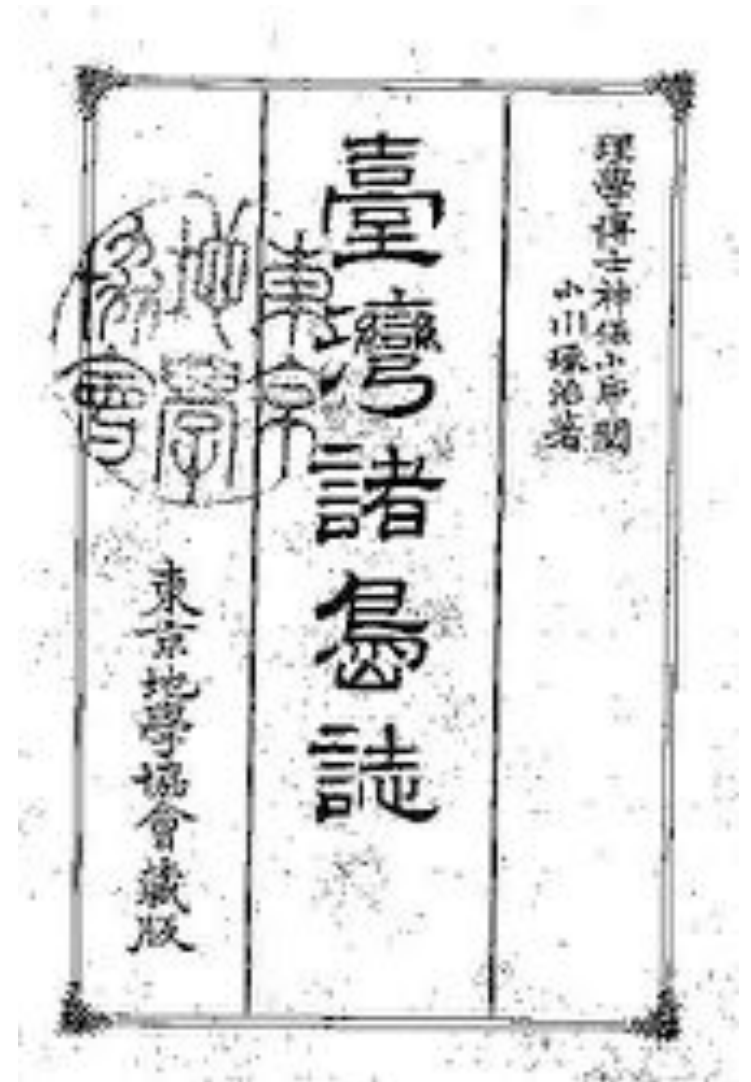 理學博士神保小虎閱
小川琢治著
臺灣諸島誌
東京地學協會藏版
東京
地學
協會